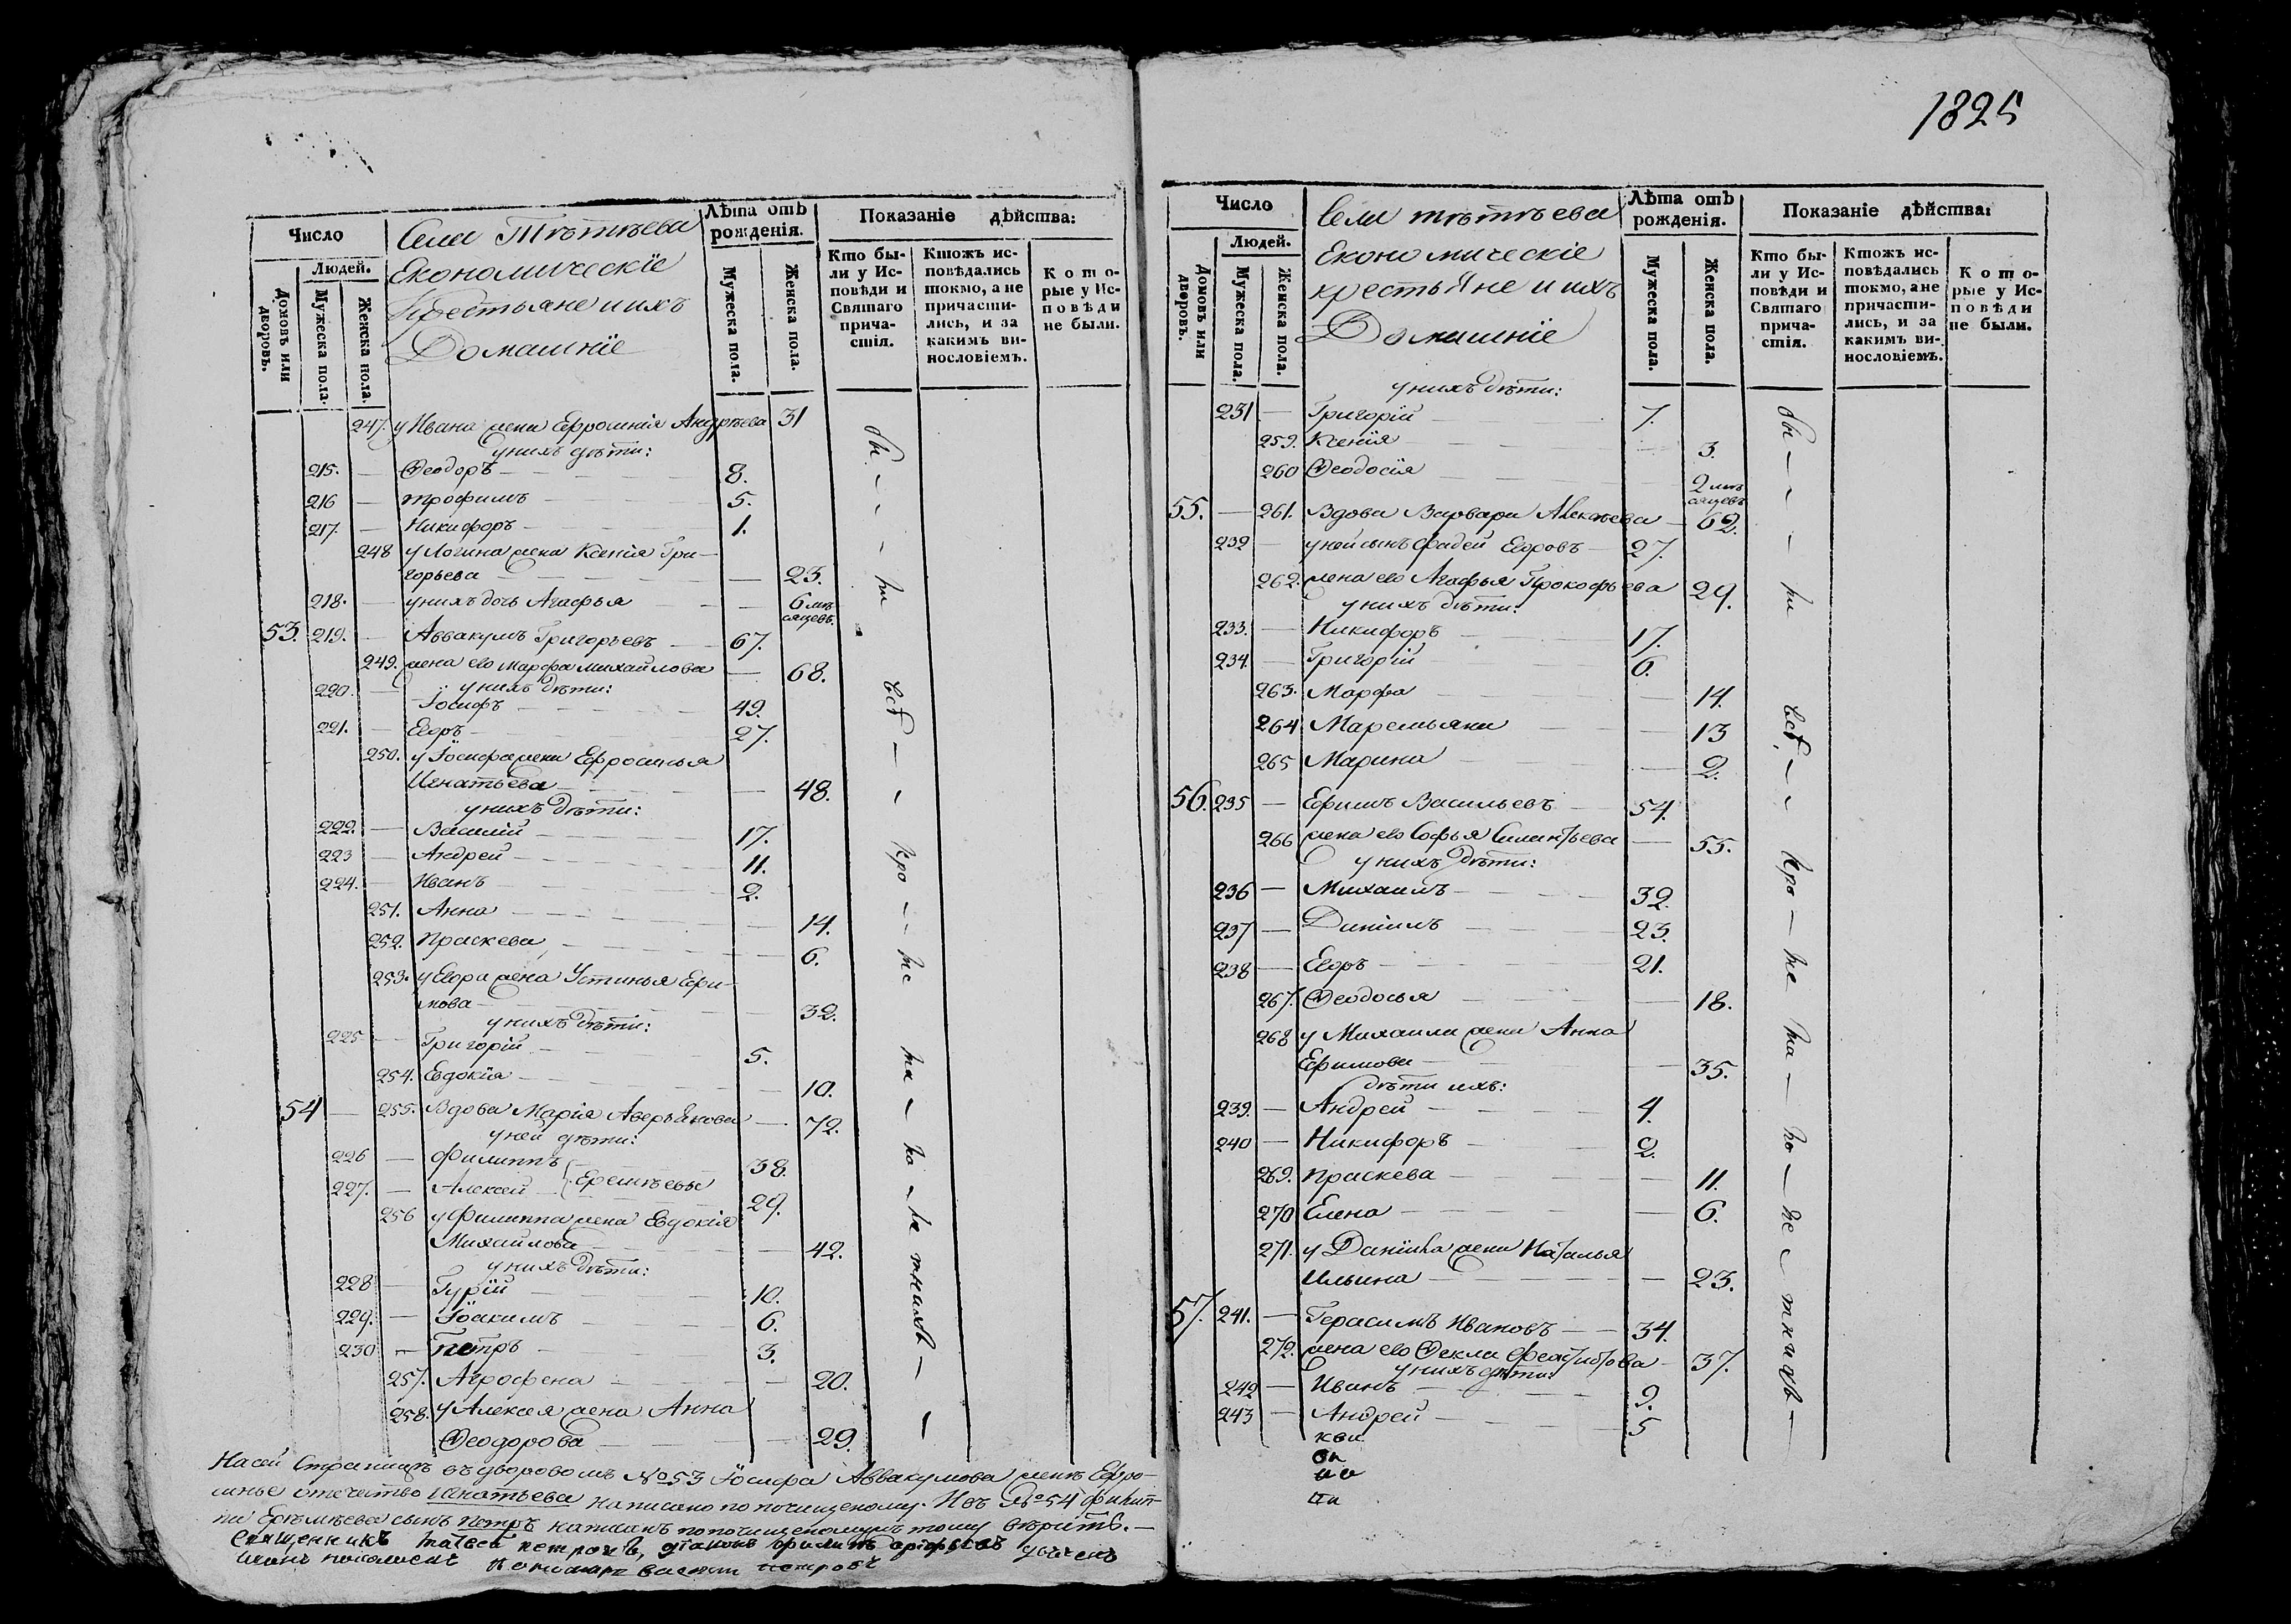 1825
Число
Села Тѣтѣева
Лѣта отъ рожденія.
Показаніе дѣйства:
Людей.
Економическіе
Крестьяне и ихъ
Домашніе
Домовъ или дворовъ.
Мужеска пола.
Женска пола.
Мужеска пола.
Женска пола.
Кто бы-
ли у Ис-
повѣди и
Святаго
прича-
стія.
Ктожъ ис-
повѣдались
токмо, а не
причасти-
лись, и за
какимъ ви-
нословіемъ.
Кото-
рые у Ис-
повѣди
не были.
247. у Ивана жена Ефросинія Андрѣева 31
у нихъ дѣти:
215. — Ѳеодоръ 8.
216 — Трофимъ 5.
217. — Никифоръ 1.
248 у Логина жена Ксенія Гри-
горьева — 23.
218. — у нихъ дочь Агафья — 6 мѣ
сяцевъ.
53. 219. — Аввакумъ Григорьевъ 67.
249. жена его Марфа Михайлова — 68.
у нихъ дѣти:
220. — Іосифъ 49.
221. — Егоръ 27.
250. у Іосифа жена Ефросинья
Игнатьева — 48.
у нихъ дѣти:
222. — Василій 17.
223 — Андрей 11.
224. — Иванъ 2.
251. Анна — 14.
252. Праскева — 6.
253. у Егора жена Устинья Ефи-
мова — 32.
у нихъ дѣти:
225 — Григорій 5.
254. Евдокія — 10.
54 — 255. Вдова Марія Аверьянова — 72.
у ней дѣти:
226 — Филиппъ 38.
Еремѣевы
227. — Алексей 29.
256 у Филиппа жена Евдокія
Михайлова — 42.
у нихъ дѣти:
228 — Гурій 10.
229. — Іоакимъ 6.
230 — Петръ 3.
257. Агрофена — 20.
258. у Алексея жена Анна
Ѳеодорова — 29.
бы — — — ли всѣ — — кро — ме ма — ло — лѣтнихъ — —
На сей страницѣ въ дворовомъ №53 Іосифа Аввакумова женѣ Ефро-
синье отечество Игнатьева написано по почищеному. И въ №54 Филип-
па Еремѣева сынъ Петръ написанъ по почищеному тому вѣрить. —
Священникъ Петровъ,
Василій Петровъ
Число
Села Тѣтѣева
Лѣта отъ рожденія.
Показаніе дѣйства:
Людей.
Економическіе
крестьяне и ихъ
Домашніе
Домовъ или дворовъ.
Мужеска пола.
Женска пола.
Мужеска пола.
Женска пола.
Кто бы-
ли у Ис-
повѣди и
Святаго
прича-
стія.
Ктожъ ис-
повѣдались
токмо, а не
причасти-
лись, и за
какимъ ви-
нословіемъ.
Кото-
рые у Ис-
повѣди
не были.
у нихъ дѣти:
231 — Григорій 7.
259. Ксенія — 3.
260 Ѳеодосія — 2 мѣ
сяцевъ
55. — 261. Вдова Варвара Алексѣева — 62.
232 — у ней сынъ Фадей Егоровъ — 27.
262. жена его Агафья Прокофьева 29.
у нихъ дѣти:
233. — Никифоръ 17.
234. — Григорій 6.
263. Марфа — 14.
264 Маремьяна — 13
265 Марина — 2.
56. 235 — Ефимъ Васильевъ 54.
266 жена его Софья Силантьева — 55.
у нихъ дѣти:
236 — Михаилъ 32.
237 — Даніилъ 23.
238 — Егоръ 21.
267. Ѳеодосья — 18.
268 у Михаила жена Анна
Ефимова — 35.
дѣти ихъ:
239. — Андрей 4.
240 — Никифоръ 2.
269. Праскева — 11.
270 Елена — 6.
271. у Даніила жена Наталья
Ильина — 23.
57. 241. — Герасимъ Ивановъ — 34.
272. жена его Ѳекла — 37.
у нихъ дѣти:
242 — Иванъ 9.
243 — Андрей 5
бы — — — ли всѣ — — кро — ме ма — ло — лѣтнихъ —